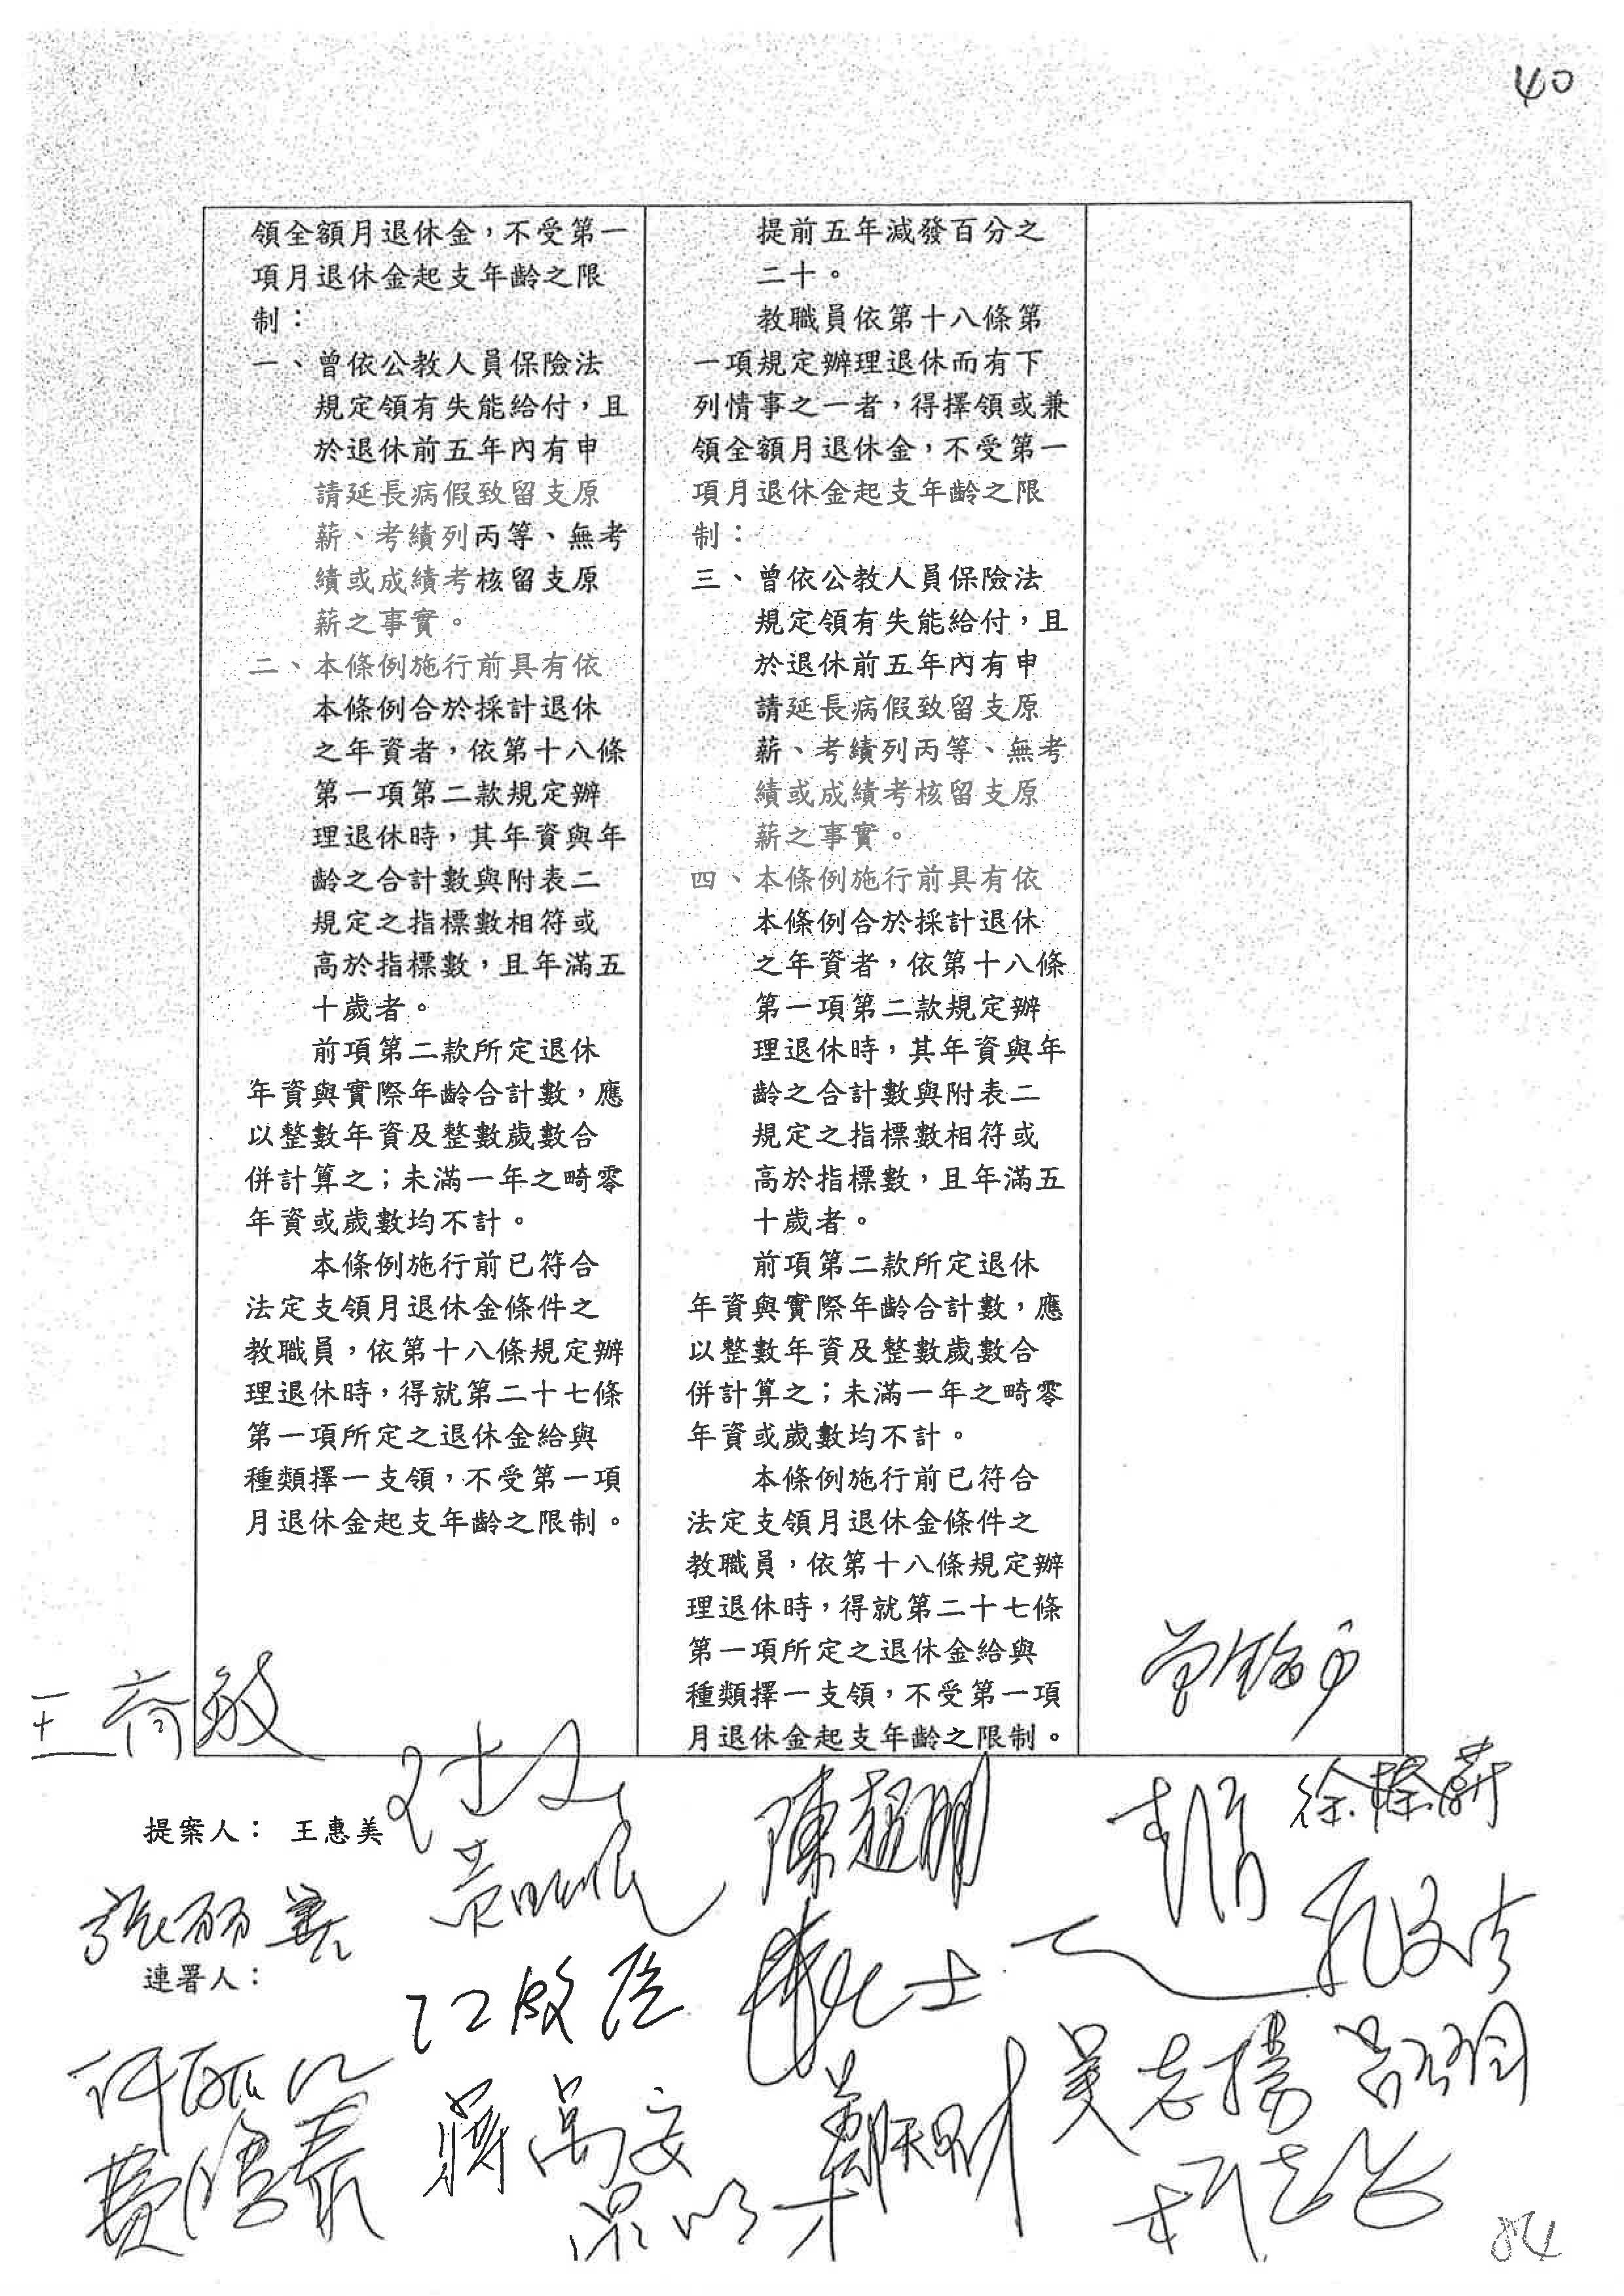 40
領全額月退休金，不受第一
項月退休金起支年齡之限
制：
一、曾依公教人員保險法
規定領有失能給付，且
於退休前五年內有申
請延長病假致留支原
薪、考績列丙等、無考
績或成績考核留支原
薪之事實。
二、本條例施行前具有依
本條例合於採計退休
之年資者，依第十八條
第一項第二款規定辦
理退休時，其年資與年
齡之合計數與附表二
規定之指標數相符或
高於指標數，且年滿五
十歲者。
前項第二款所定退休
年資與實際年齡合計數，應
以整數年資及整數歲數合
併計算之；未滿一年之畸零
年資或歲數均不計。
本條例施行前已符合
法定支領月退休金條件之
教職員，依第十八條規定辦
理退休時，得就第二十七條
第一項所定之退休金給與
種類擇一支領，不受第一項
月退休金起支年齡之限制。
提前五年減發百分之
二十。
教職員依第十八條第
一項規定辦理退休而有下
列情事之一者，得擇領或兼
領全額月退休金，不受第一
項月退休金起支年齡之限
制：
三、曾依公教人員保險法
規定領有失能給付，且
於退休前五年內有申
請延長病假致留支原
薪、考績列丙等、無考
績或成績考核留支原
薪之事實。
四、本條例施行前具有依
本條例合於採計退休
之年資者，依第十八條
第一項第二款規定辦
理退休時，其年資與年
齡之合計數與附表二
規定之指標數相符或
高於指標數，且年滿五
十歲者。
前項第二款所定退休
年資與實際年齡合計數，應
以整數年資及整數歲數合
併計算之；未滿一年之畸零
年資或歲數均不計。
本條例施行前已符合
法定支領月退休金條件之
教職員，依第十八條規定辦
理退休時，得就第二十七條
第一項所定之退休金給與
種類擇一支領，不受第一項
月退休金起支年齡之限制。
曾銘宗
提案人： 王惠美
陳超明
徐榛蔚
張麗善
黃昭順
孔文吉
連署人：
江啟臣
吳志揚
呂玉玲
許毓仁
費鴻泰
蔣萬安
鄭天財
柯志恩
84